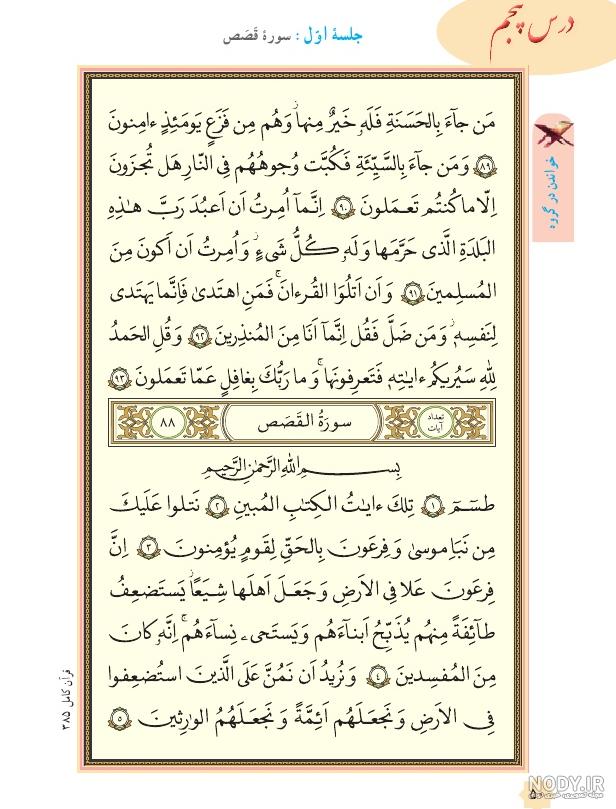 درس پنجم
جلسهٔ اوّل : سورهٔ قَصَص
خواندن در گروه
مَن جآءَ بِالحَسَنَةِ فَلَهٗ خَیرٌ مِنها وَ هُم مِن فَزَعٍ یَومَئِذٍ ءامِنونَ
﴿٨٩﴾ وَ مَن جآءَ بِالسَّیِّئَةِ فَکُبَّت وُجوهُهُم فِی النّارِ هَل تُجزَونَ
اِلّا ما کُنتُم تَعمَلونَ ﴿٩٠﴾ اِنَّمآ اُمِرتُ اَن اَعبُدَ رَبَّ هٰذِهِ
البَلدَةِ الَّذی حَرَّمَها وَ لَهٗ کُلُّ شَیءٍ وَ اُمِرتُ اَن اَکونَ مِنَ
المُسلِمینَ ﴿٩١﴾ وَ اَن اَتلُوَا القُرءانَ فَمَنِ اهتَدیٰ فَاِنَّما یَهتَدی
لِنَفسِهٖ وَ مَن ضَلَّ فَقُل اِنَّمآ اَنَا مِنَ المُنذِرینَ ﴿٩٢﴾ وَ قُلِ الحَمدُ
لِلّٰهِ سَیُریکُم ءایاتِهٖ فَتَعرِفونَها وَ ما رَبُّکَ بِغافِلٍ عَمّا تَعمَلونَ ﴿٩٣﴾
تعداد آیات
سورَةُ القَصَص
٨٨
بِسمِ اللّٰهِ الرَّحمٰنِ الرَّحیمِ
طسٓمٓ ﴿١﴾ تِلکَ ءایاتُ الکِتابِ المُبینِ ﴿٢﴾ نَتلوا عَلَیکَ
مِن نَبَاِ موسیٰ وَ فِرعَونَ بِالحَقِّ لِقَومٍ یُؤمِنونَ ﴿٣﴾ اِنَّ
فِرعَونَ عَلا فِی الاَرضِ وَ جَعَلَ اَهلَها شِیَعًا یَستَضعِفُ
طآئِفَةً مِنهُم یُذَبِّحُ اَبنآءَهُم وَ یَستَحیٖ نِسآءَهُم اِنَّهٗ کانَ
مِنَ المُفسِدینَ ﴿٤﴾ وَ نُریدُ اَن نَمُنَّ عَلَی الَّذینَ استُضعِفوا
فِی الاَرضِ وَ نَجعَلَهُم اَئِمَّةً وَ نَجعَلَهُمُ الوارِثینَ ﴿٥﴾
قرآن کامل ۳۸۵
NODY.IR